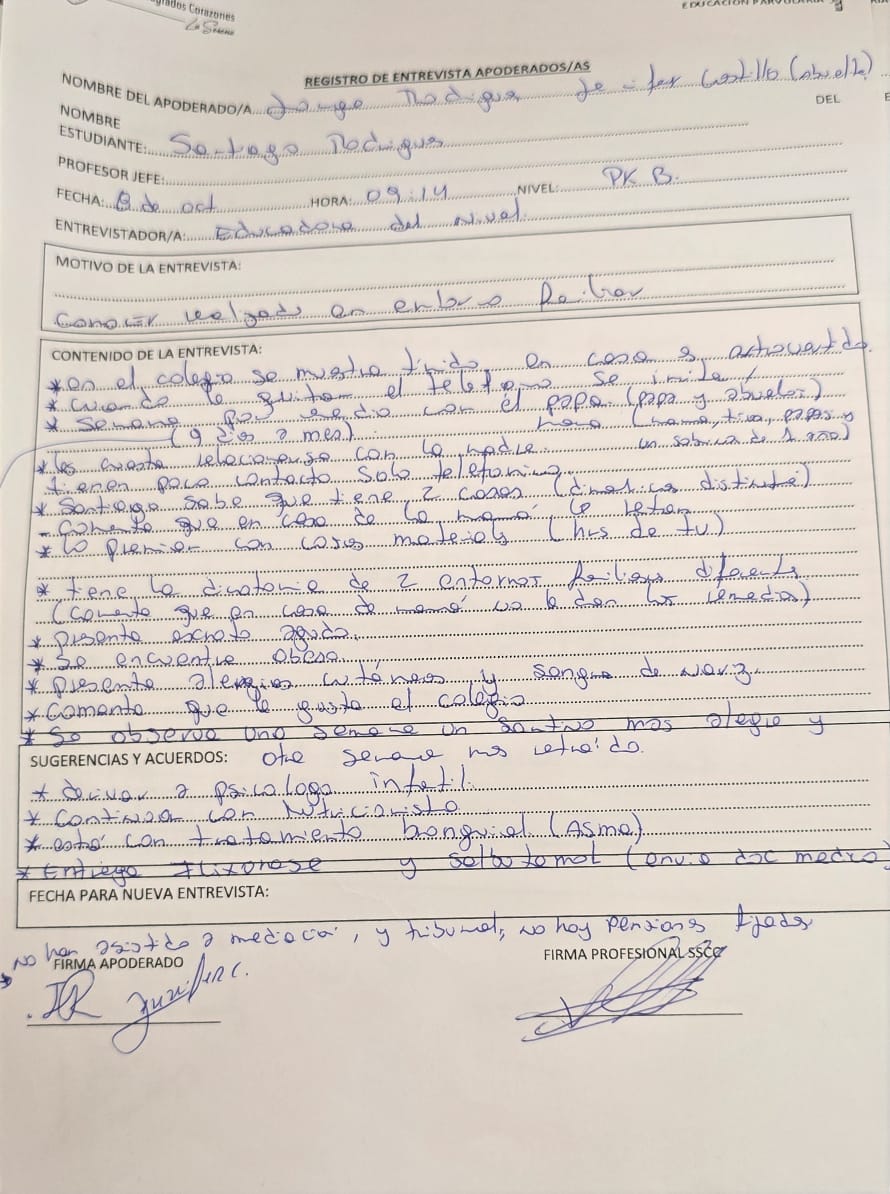 grados Corazones
La Serena
REGISTRO DE ENTREVISTA APODERADOS/AS
NOMBRE DEL APODERADO/A Rodrigue Castillo (abuela)
NOMBRE DEL
ESTUDIANTE: Santiago Rodrigues
PROFESOR JEFE:
FECHA: 8 de oct HORA: 09:14 NIVEL: PK B.
ENTREVISTADOR/A: Educadora del nivel.
MOTIVO DE LA ENTREVISTA:
Conocer realidad en entorno
CONTENIDO DE LA ENTREVISTA:
* en el colegio se muestra tímido, en casa es
* Cuando le quitan el teléfono se irrita /
* Semana por medio con el papa (papa y abuelos)
(9 días a mes) mama (mama, tios, papas y
un sobrino de 1 año)
* les cuesta relacionarse con la madre.
tienen poco contacto solo telefonico
* Santiago sabe que tiene 2 casas (dinamicas distintas)
- Comenta que en casa de la mamá le retan
* Lo premian con cosas materiales (hrs de tv)
* tiene la dicotomia de 2 entornos diferentes
(Comenta que en casa de mamá no le dan los remedios)
* presenta agudo.
* Se encuentra obeso.
* presenta alergias cutáneas y sangra de nariz.
* Comenta que le gusta el colegio
* Se observa una semana un más alegre y
SUGERENCIAS Y ACUERDOS: otra semana mas retraído.
* derivar a psicologo infantil.
* Continuar con Nutricionista
* está con tratamiento bronquial (Asma)
* Entrega Flixonase y salbutamol (envio doc medico)
FECHA PARA NUEVA ENTREVISTA:
No han asistido a mediación, y tribunal, no hay pensiones fijadas
FIRMA APODERADO FIRMA PROFESIONAL SSCC
JR Jennifer C.